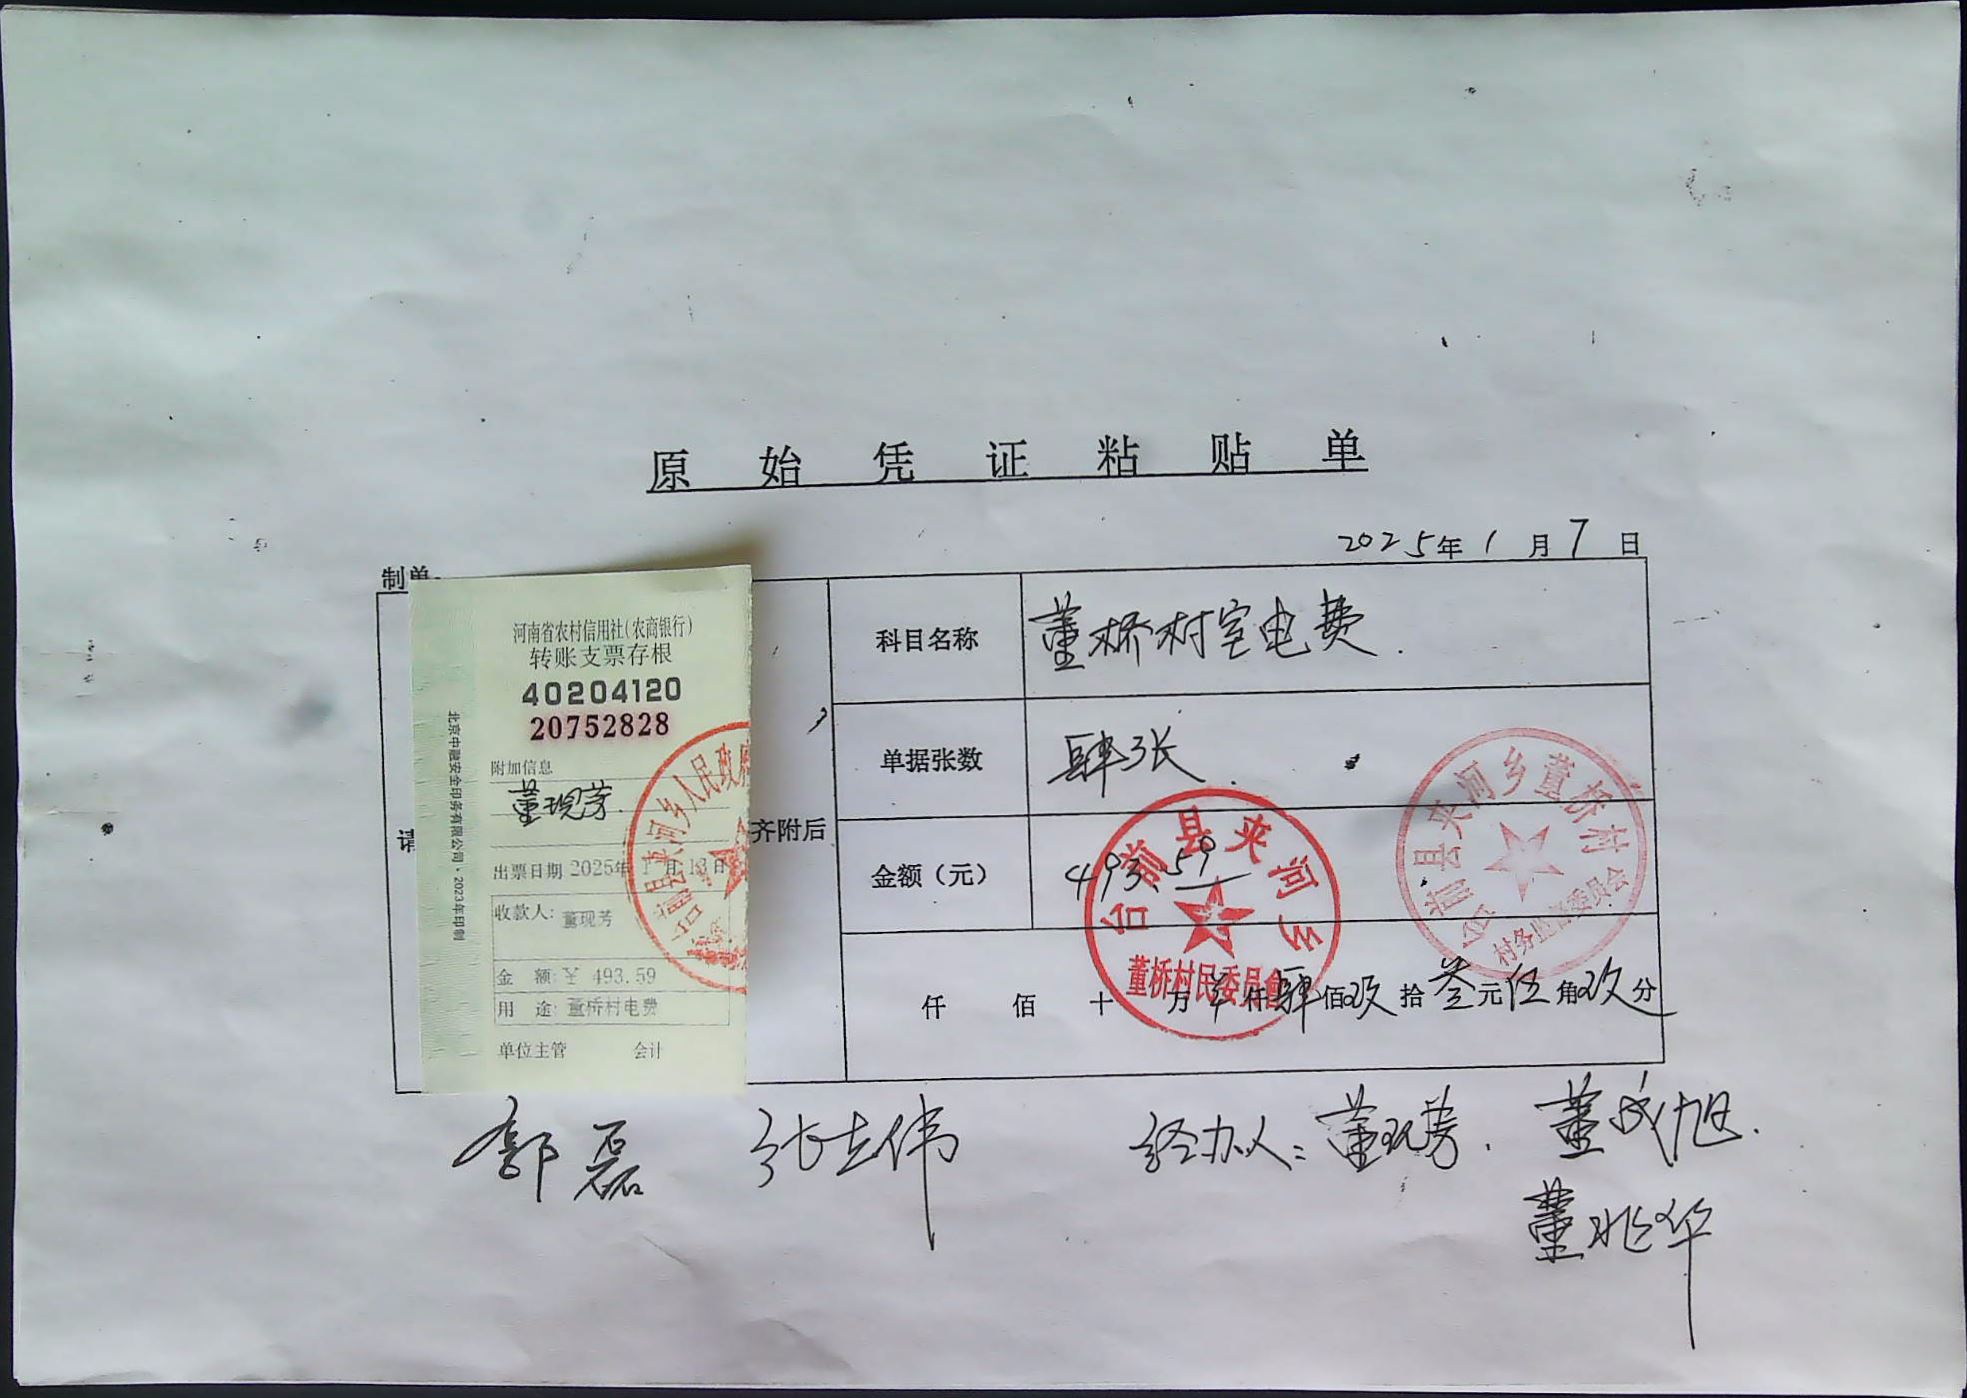 原始凭证粘贴单
2025年1月7日
制单:
请
齐附后
河南省农村信用社(农商银行)
转账支票存根
40204120
20752828
附加信息
董现芳.
出票日期 2025年1月13日
收款人: 董现芳
金 额: ¥ 493.59
用 途: 董桥村电费
单位主管 会计
北京中融安全印务有限公司·2023年印制
台前县夹河乡人民政府
科目名称 董桥村室电费.
单据张数 肆张.
金额（元） 493.59
仟 佰 十 万 仟肆佰玖拾叁元伍角玖分
台前县夹河乡
董桥村民委员會
台前县夹河乡董桥村
村务监督委员会
郭磊 张志伟 经办人: 董现芳. 董成旭.
董兆华